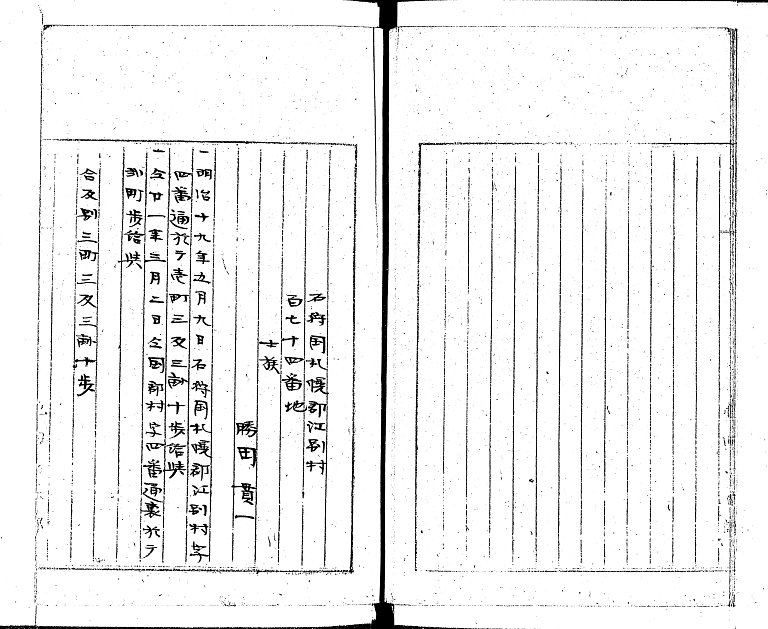 石狩国札幌郡江別村
百七十四番地
士族
勝田貫一
一明治十九年五月九日石狩国札幌郡江別村字
四番通於テ壱町三反三畝十歩給与
一仝廿一年三月二日仝国郡村字四番通裏於テ
弐町歩給与
合反別三町三反三畝十歩